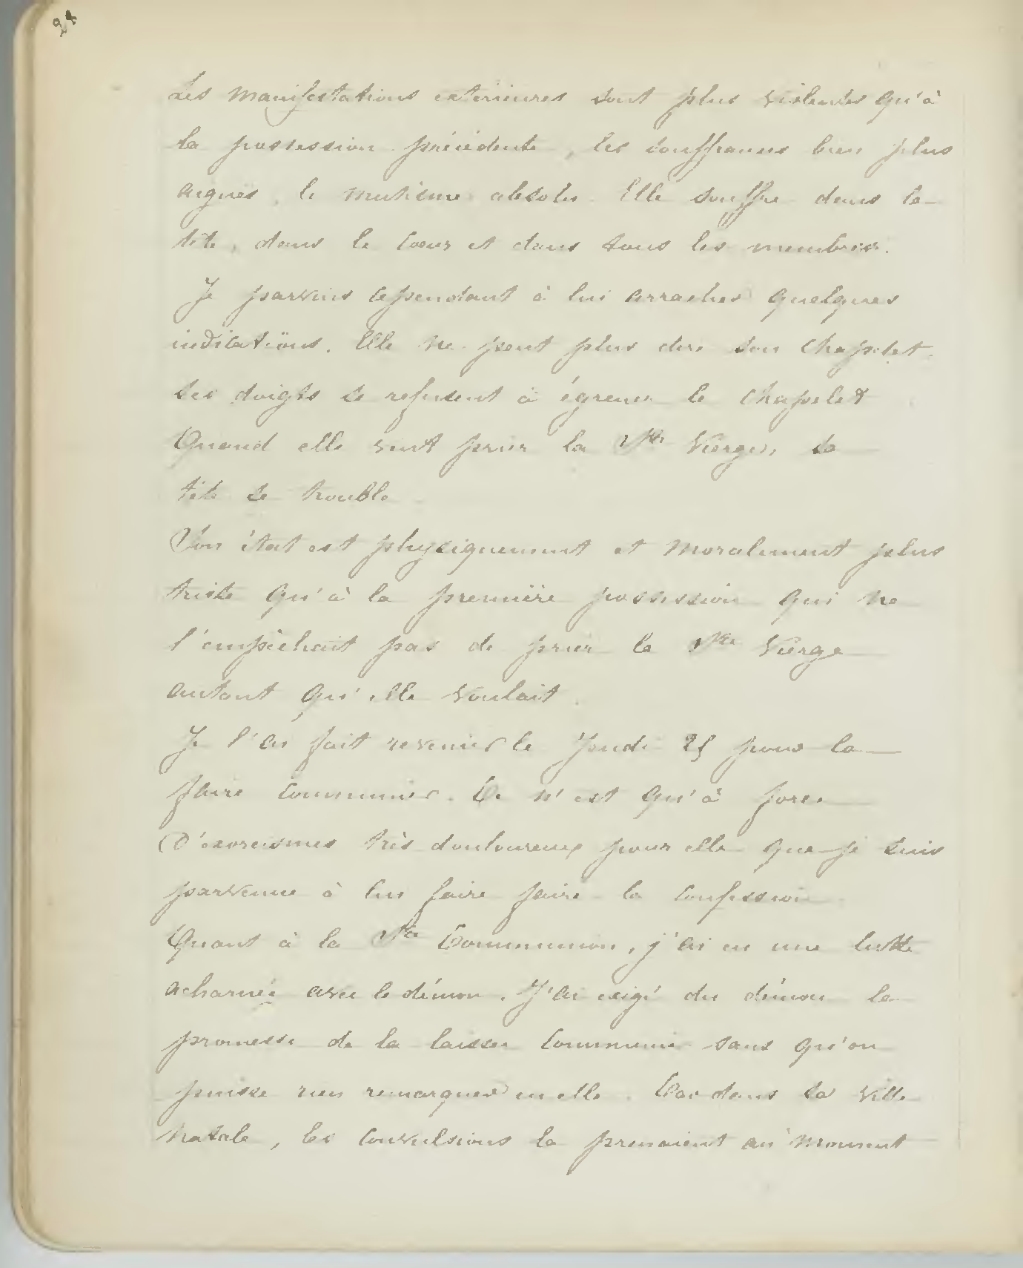 24
Les manifestations extérieures sont plus violentes qu'à
la possession précédente, les souffrances bien plus
aigues, le mutisme absolu. Elle souffre dans la
tête, dans le coeur et dans tous les membres.
Je parviens cependant à lui arracher quelques
indications. Elle ne peut plus dire son chapelet.
Ses doigts se refusent à égrener le chapelet
Quand elle veut prier la Ste Vierge, sa
tête se trouble
Son état est physiquement et moralement plus
triste qu'à la première possession qui ne
l'empêchait pas de prier la Ste Vierge
autant qu'elle voulait.
Je l'ai fait revenir le Jeudi 25 pour la
faire communier. Ce n'est qu'à force
d'exorcismes très douloureux pour elle que je suis
parvenue à lui faire faire la confession
Quant à la Ste Communion, j'ai eu une lutte
acharnée avec le démon. J'ai exigé du démon la
promesse de la laisser communier sans qu'on
puisse rien remarquer en elle. Car dans sa ville
natale, les convulsions la prenaient au moment